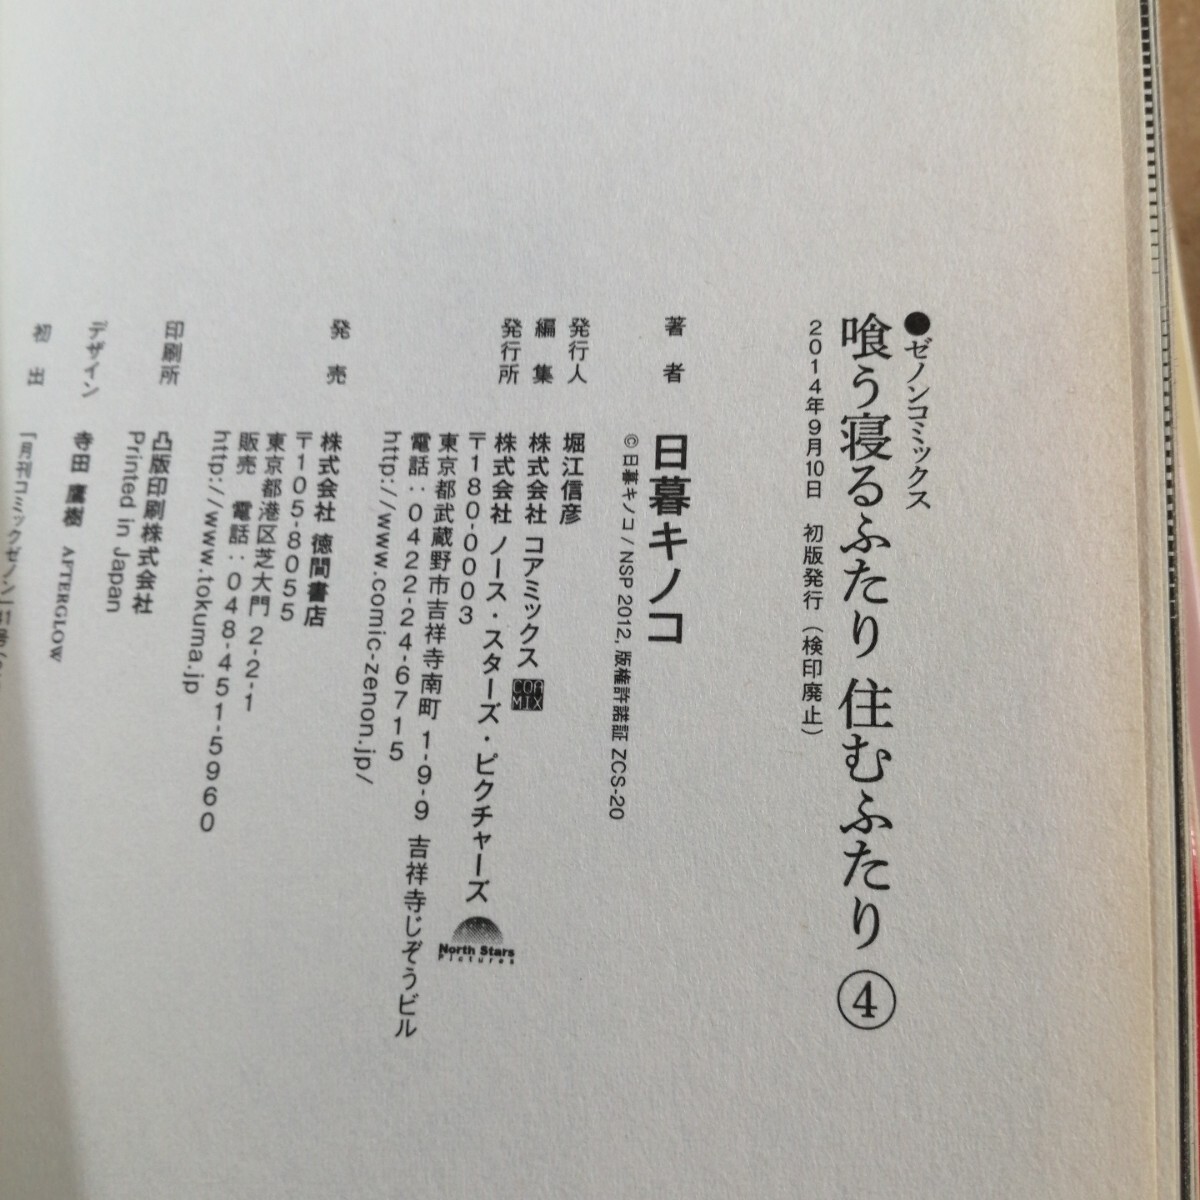 ●ゼノンコミックス
喰う寝るふたり 住むふたり ④
2014年9月10日 初版発行(検印廃止)
著者 日暮キノコ
©日暮キノコ/NSP 2012, 版権許諾証 ZCS-20
発行人 堀江信彦
編集 株式会社 コアミックス COAMIX
発行所 株式会社 ノース・スターズ・ピクチャーズ North Stars Pictures
〒180-0003
東京都武蔵野市吉祥寺南町 1-9-9 吉祥寺じぞうビル
電話:0422-24-6715
http://www.comic-zenon.jp/
発売 株式会社 徳間書店
〒105-8055
東京都港区芝大門 2-2-1
販売 電話:048-451-5960
http://www.tokuma.jp
印刷所 凸版印刷株式会社
Printed in Japan
デザイン 寺田 鷹樹 AFTERGLOW
初出 「月刊コミックゼノン」